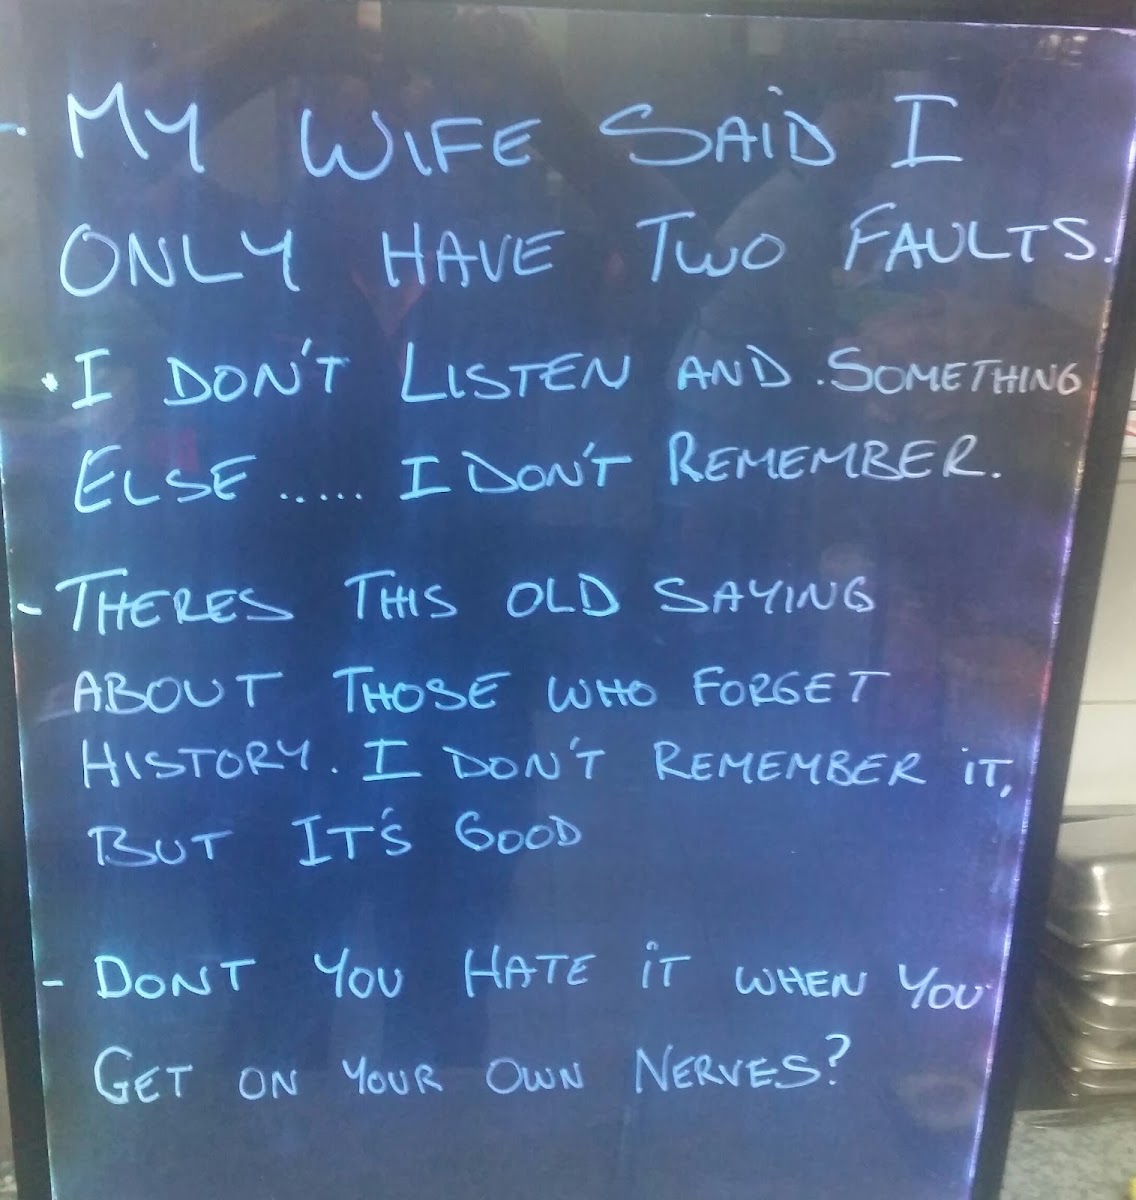 - MY WIFE SAID I
ONLY HAVE TWO FAULTS.
• I DON'T LISTEN AND . SOMETHING
ELSE ...... I DON'T REMEMBER.
- THERES THIS OLD SAYING
ABOUT THOSE WHO FORGET
HISTORY. I DON'T REMEMBER IT,
BUT IT'S GOOD
- DONT YOU HATE IT WHEN YOU
GET ON YOUR OWN NERVES?